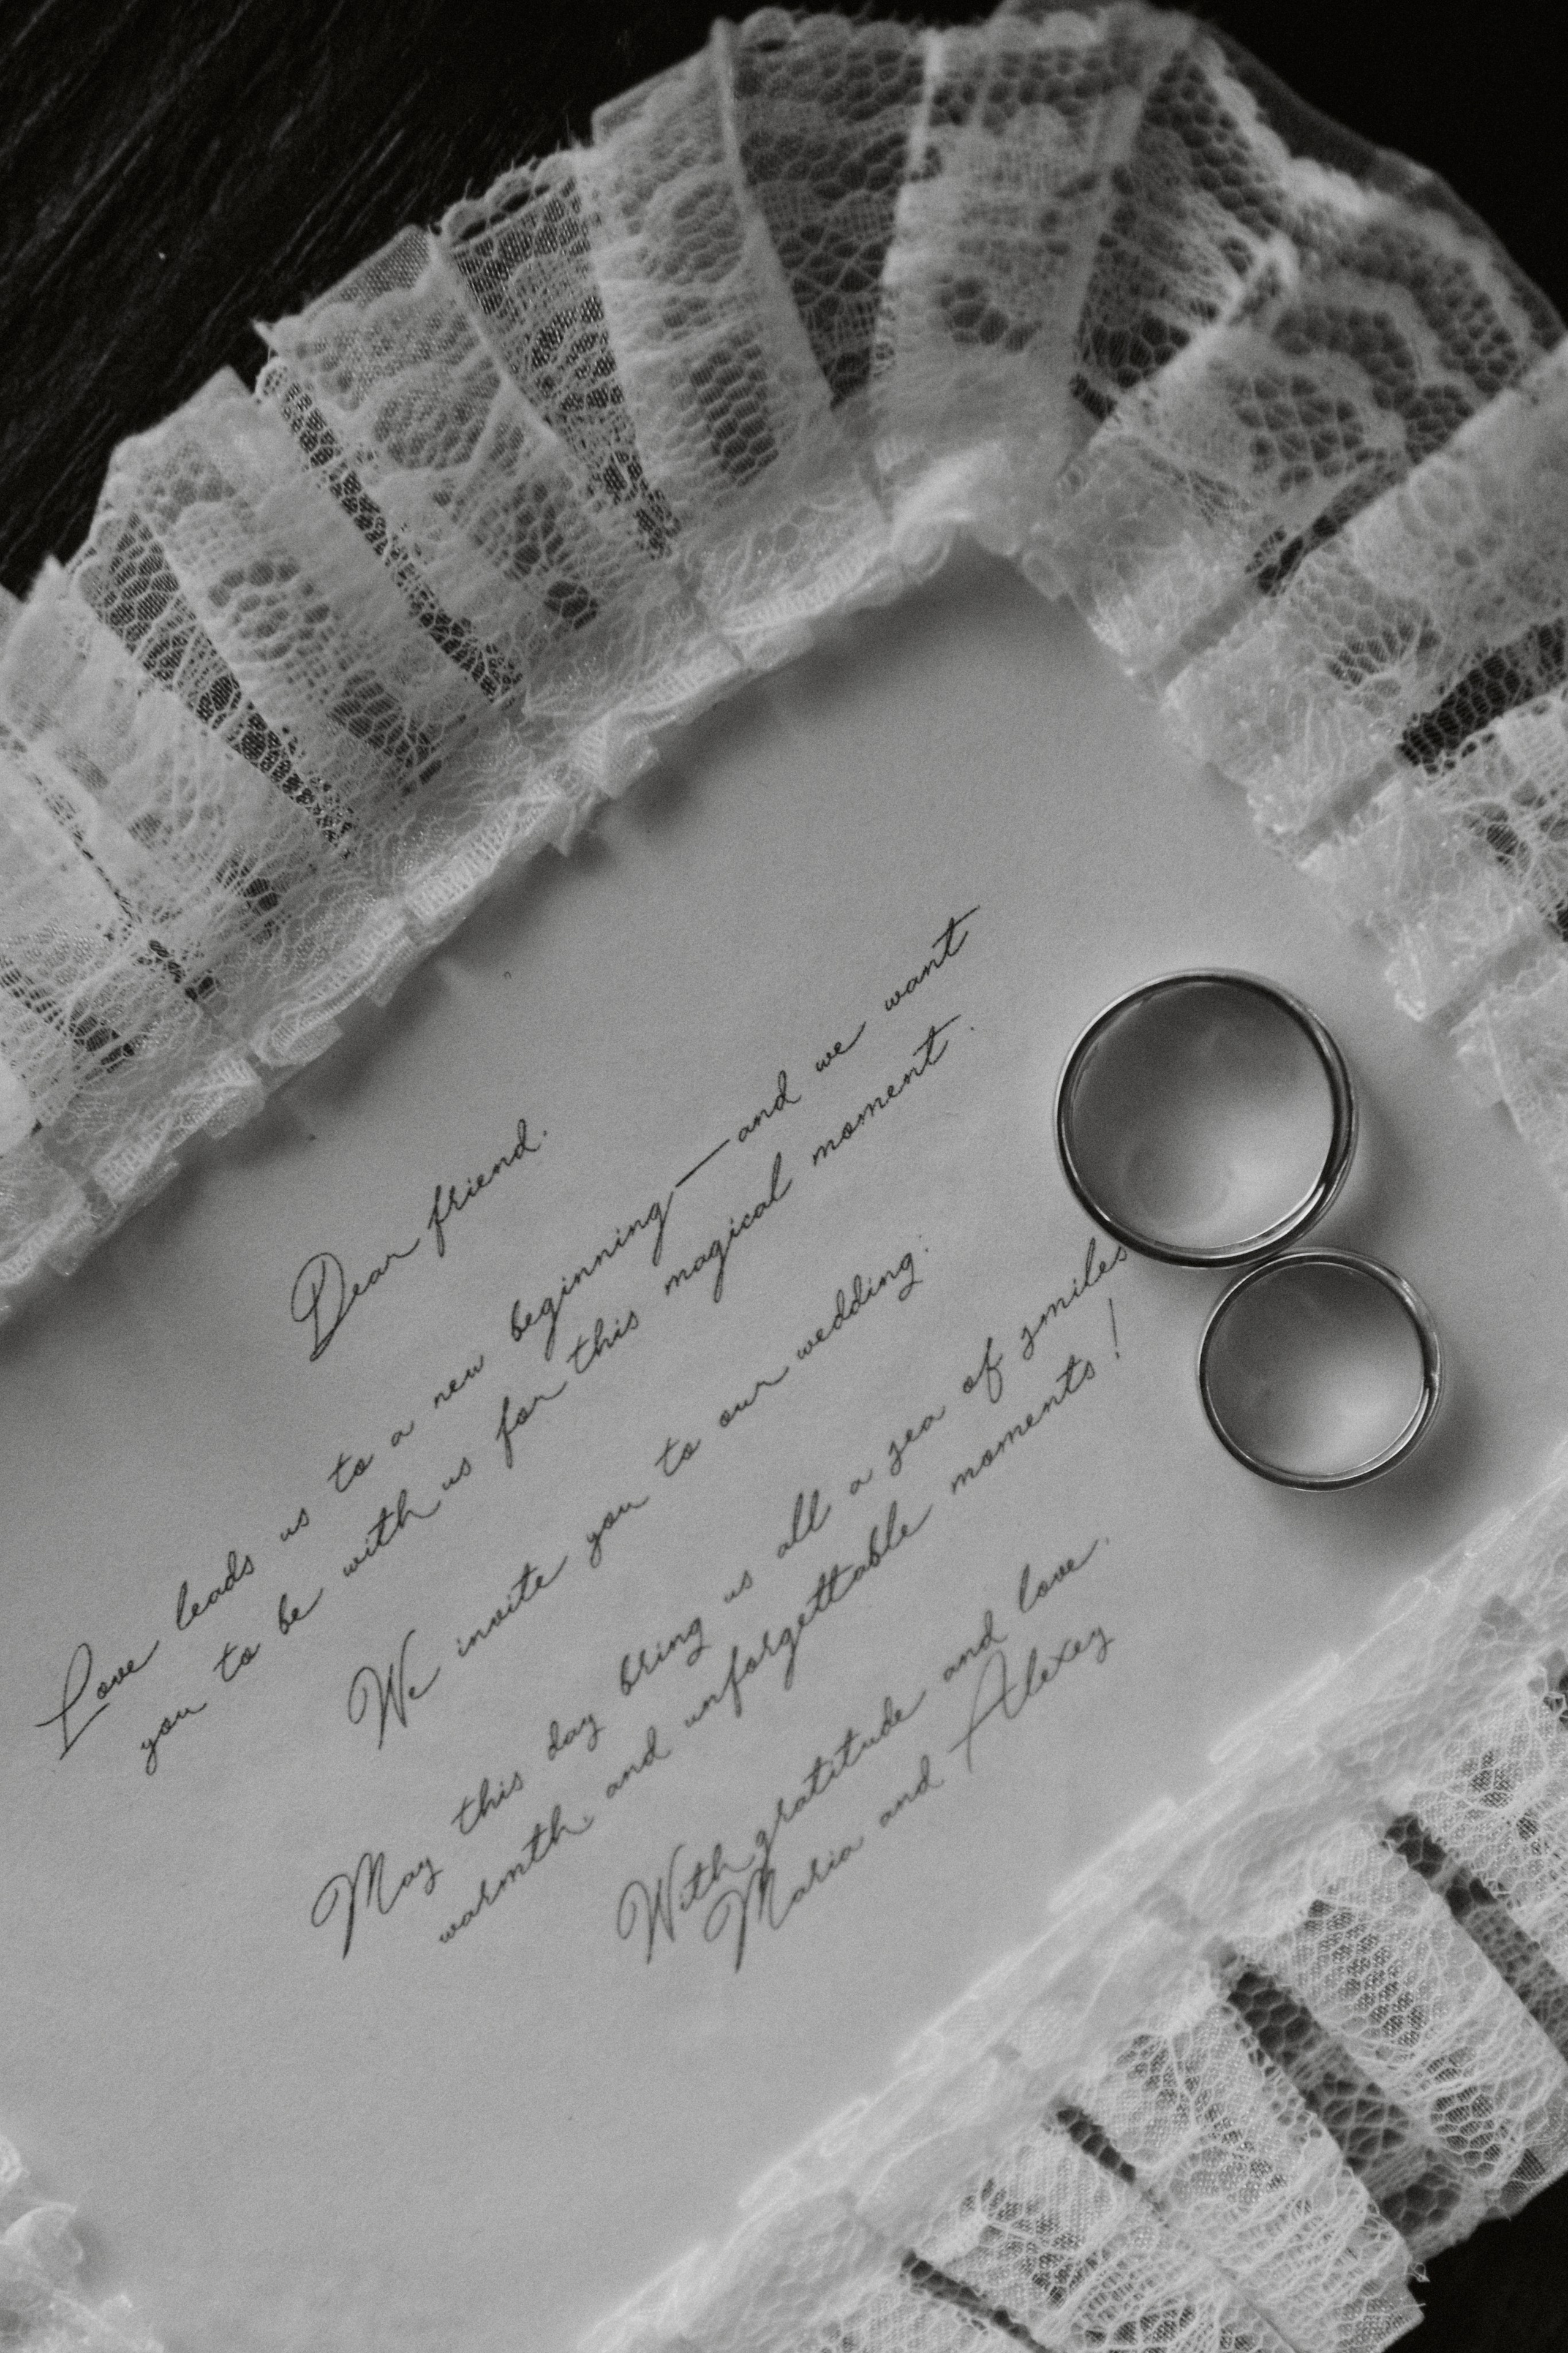 Dear friend.
Love leads us to a new beginning—and we want
you to be with us for this magical moment.
We invite you to our wedding.
May this day bring us all a sea of smiles
warmth and unforgettable moments!
With gratitude and love.
Maria and Alexey